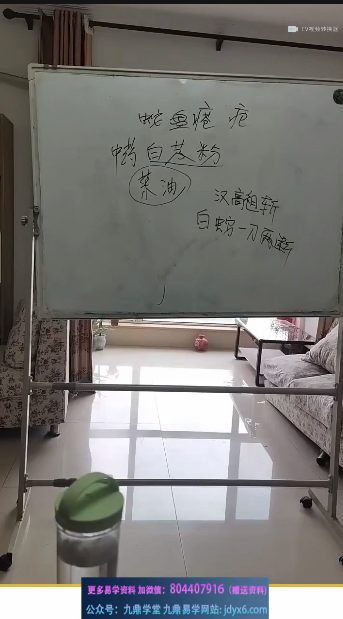 TV视频转换器
蛇盘疮疤
中药白芨粉
菜油
汉高祖斩
白蛇一刀两断
更多易学资料 加微信：804407916（赠送资料）
公众号：九鼎学堂 九鼎易学网站: jdyx6.com